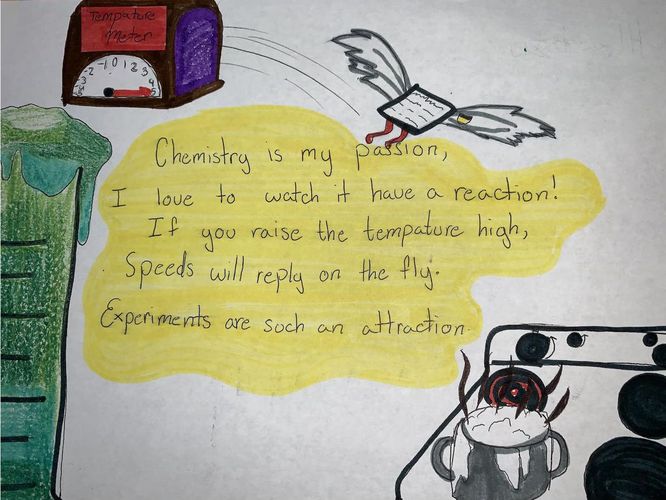 Tempature
Meter
-4 -3 -2 -1 0 1 2 3 4 5
Chemistry is my passion,
I love to watch it have a reaction!
If you raise the tempature high,
Speeds will reply on the fly.
Experiments are such an attraction.